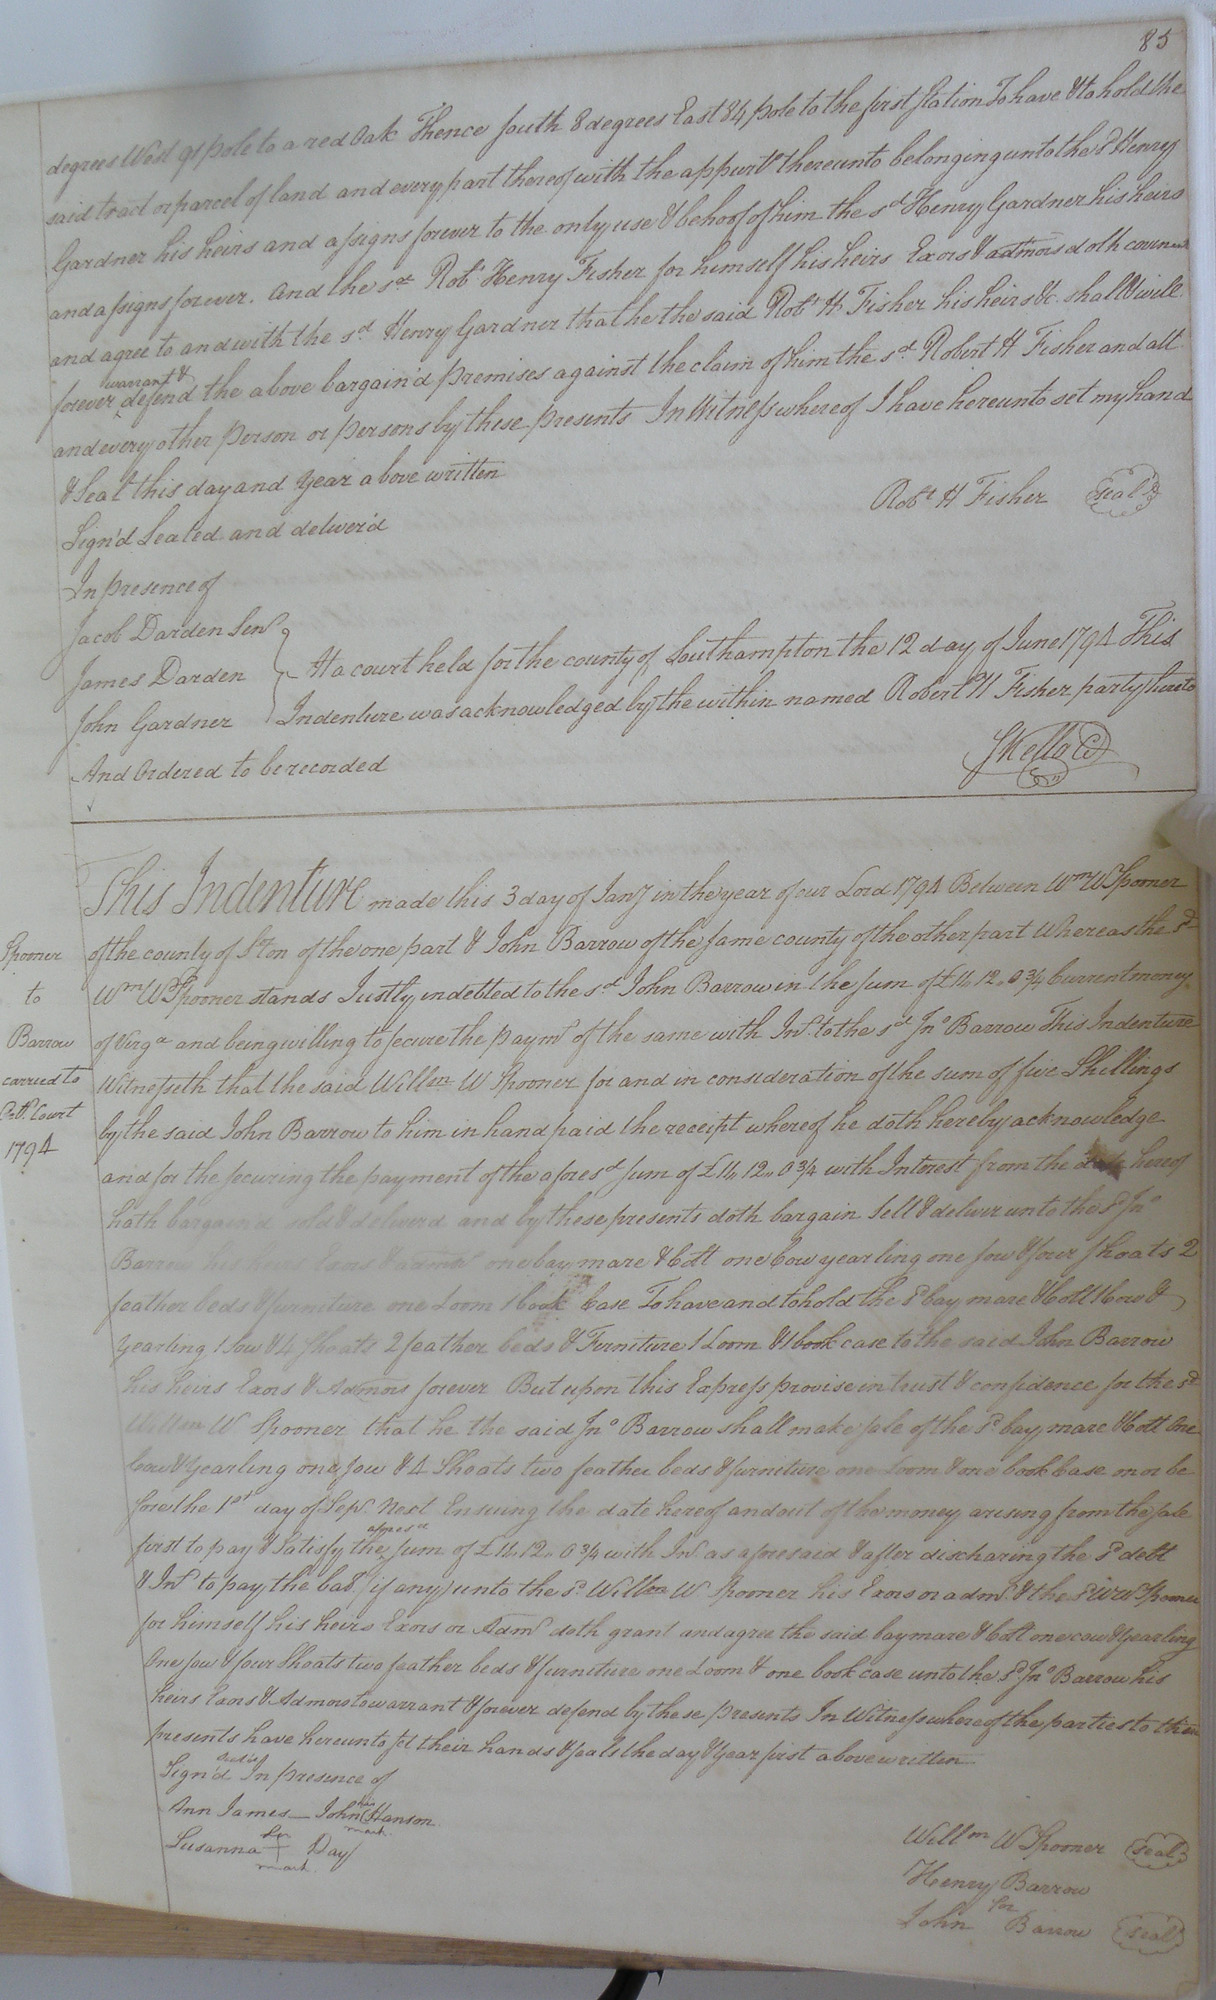 85
degrees West 91 pole to a red Oak Thence South 8 degrees East 84 pole to the first Station To have & to hold the
said tract or parcel of land and every part thereof with the appurts thereunto belonging unto the sd Henry
Gardner his heirs and assigns forever to the only use & behoof of him the sd Henry Gardner his heirs
and assigns forever. And the sd Robt Henry Fisher for himself his heirs Exors & admors doth covenant
and agree to and with the sd Henry Gardner that he the said Robt H Fisher his heirs &c. shall & will
warrant &
forever defend the above bargain'd premises against the claim of him the sd Robert H Fisher and all
and every other person or persons by these presents In Witness whereof I have hereunto set my hand
& Seal this day and year above written
Robt H Fisher seal
Sign'd Sealed and deliver'd
In presence of
Jacob Darden Senr
James Darden
John Gardner
At a court held for the county of Southampton the 12 day of June 1794 This
Indenture was acknowledged by the within named Robert H Fisher party hereto
And Ordered to be recorded
SKello CC
This Indenture made this 3 day of Jany in the year of our Lord 1794 Between Wm W Spooner
of the county of Ston of the one part & John Barrow of the same county of the other part Whereas the sd
Wm W Spooner stands Justly indebted to the sd John Barrow in the sum of £11,, 12,, 0 3/4 Current money
of Virga and being willing to secure the paymt of the same with Int. to the sd Jno Barrow This Indenture
Witnesseth that the said Willm W Spooner for and in consideration of the sum of five Shillings
by the said John Barrow to him in hand paid the receipt whereof he doth hereby acknowledge
and for the securing the payment of the aforesd sum of £11,, 12,, 0 3/4 with Interest from the date hereof
hath bargain'd sold & deliverd and by these presents doth bargain Sell & deliver unto the sd Jno
Barrow his heirs Exors & admrs one bay mare & Colt one Cow yearling one sow & four shoats 2
feather beds & furniture one Loom 1 book Case To have and to hold the sd bay mare & Colt 1 Cow &
yearling 1 sow & 4 Shoats 2 feather beds & Furniture 1 Loom & 1 book case to the said John Barrow
his heirs Exors & Admors forever But upon this Express provise in trust & confidence for the sd
Willm W Spooner that he the said Jno Barrow shall make sale of the sd bay mare & Colt One
Cow & yearling one sow & 4 Shoats two feather beds & furniture one Loom & one book Case on or be
fore the 1st day of Sepr. next Ensuing the date hereof and out of the money arising from the sale
aforesd
first to pay & Satisfy the sum of £11,, 12,, 0 3/4 with Int. as aforesaid & after discharing the sd debt
& Int. to pay the bal. (if any) unto the sd Willm W Spooner his Exors or admr. & the sd Wm W Spooner
for himself his heirs Exors or Admr doth grant and agree the said bay mare & Colt one cow & yearling
One sow & four Shoats two feather beds & furniture one Loom & one book case unto the sd Jno Barrow his
heirs Exors & Admors to warrant & forever defend by these presents In Witness whereof the parties to these
presents have hereunto set their hands & seals the day & year first above written
Sign'd In presence of
Ann James John his Hanson
mark
Susanna her + Day
mark
Willm W Spooner seal
Henry Barrow
for
John Barrow seal
Spooner
to
Barrow
carried to
Octr. Court
1794